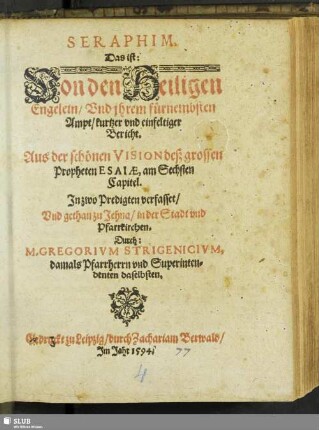 SERAPHIM.
Das ist:
Von den Heiligen
Engelein/ Vnd jhrem fürnembsten
Ampt/ kurtzer vnd einfeltiger
Bericht.
Aus der schönen VISION deß grossen
Propheten ESAIÆ, am Sechsten
Capitel.
In zwo Predigten verfasset/
Vnd gethan zu Jehna/ in der Stadt vnd
Pfarrkirchen.
Durch:
M. GREGORIVM STRIGENICIVM,
damals Pfarrherrn vnd Superinten-
denten daselbsten.
Gedruckt zu Leipzig/ durch Zachariam Berwald/
Im Jahr 1594.
77
4
SLUB